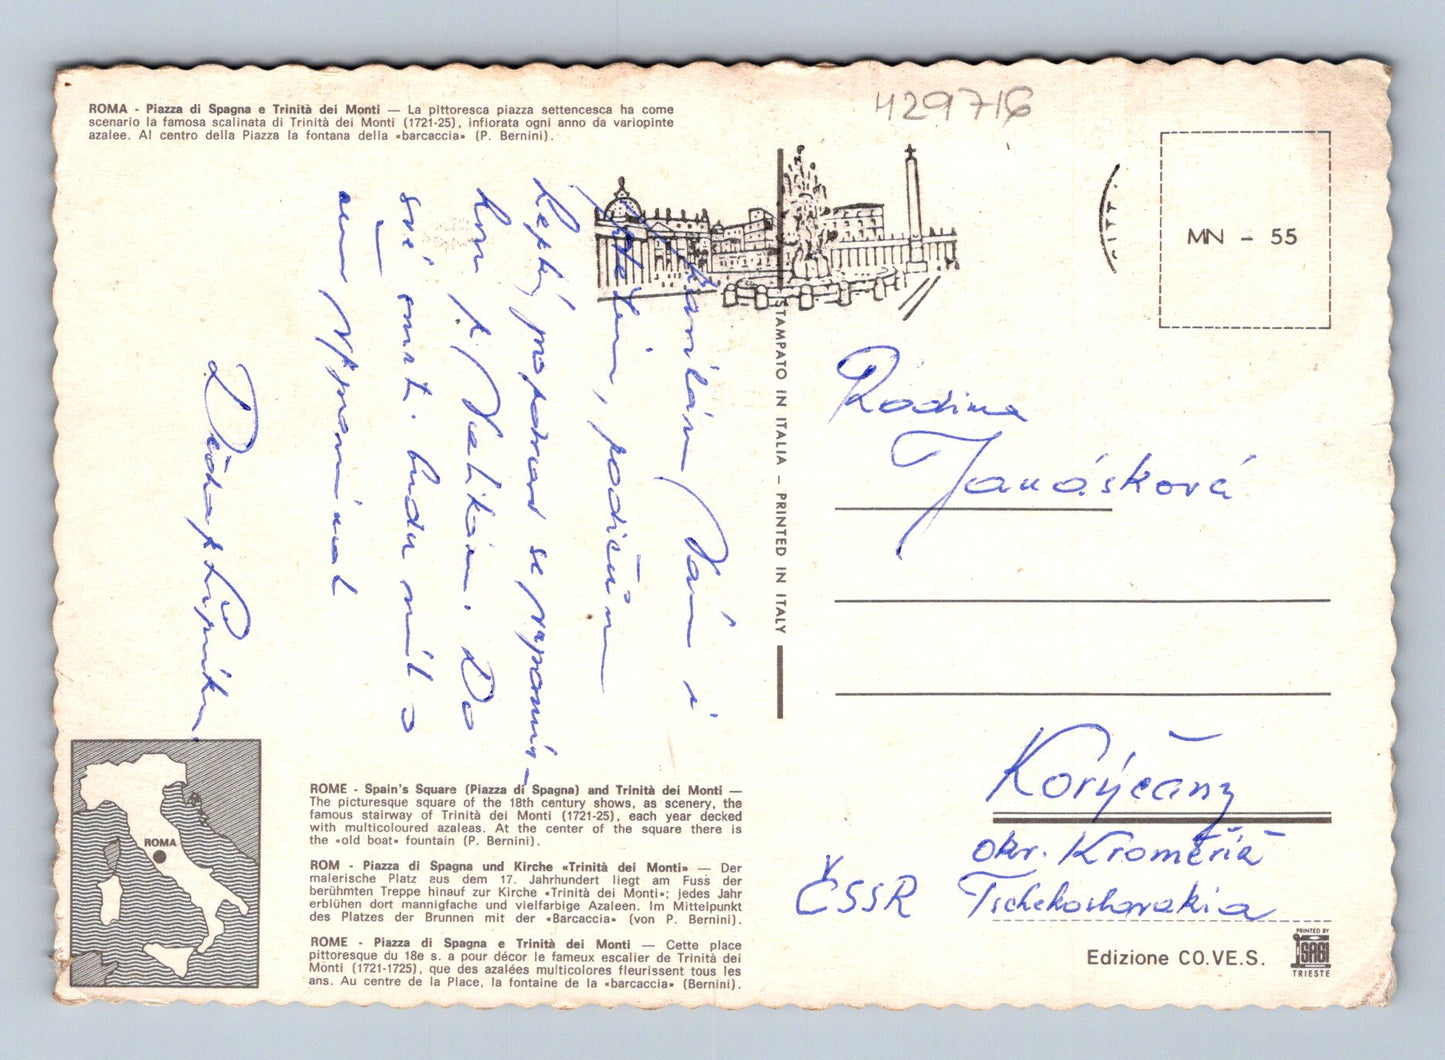 ROMA - Piazza di Spagna e Trinità dei Monti — La pittoresca piazza settencesca ha come
scenario la famosa scalinata di Trinità dei Monti (1721-25), infiorata ogni anno da variopinte
azalee. Al centro della Piazza la fontana della «barcaccia» (P. Bernini).
429716
MN - 55
CITT
Vám i
dětem,
Teplý pozdrav se vzpomín-
kou z Vatikánu. Do
své smrti budu mít o
vzpomínat
STAMPATO IN ITALIA - PRINTED IN ITALY
Rodina
Janásková
Koryčany
okr. Kroměříž
ČSSR Tschekoslovakia
ROMA
ROME - Spain's Square (Piazza di Spagna) and Trinità dei Monti —
The picturesque square of the 18th century shows, as scenery, the
famous stairway of Trinità dei Monti (1721-25), each year decked
with multicoloured azaleas. At the center of the square there is
the «old boat» fountain (P. Bernini).
ROM - Piazza di Spagna und Kirche «Trinità dei Monti» — Der
malerische Platz aus dem 17. Jahrhundert liegt am Fuss der
berühmten Treppe hinauf zur Kirche «Trinità dei Monti»; jedes Jahr
erblühen dort mannigfache und vielfarbige Azaleen. Im Mittelpunkt
des Platzes der Brunnen mit der «Barcaccia» (von P. Bernini).
ROME - Piazza di Spagna e Trinità dei Monti — Cette place
pittoresque du 18e s. a pour décor le fameux escalier de Trinità dei
Monti (1721-1725), que des azalées multicolores fleurissent tous les
ans. Au centre de la Place, la fontaine de la «barcaccia» (Bernini).
Edizione CO.VE.S.
PRINTED BY
SAGI
TRIESTE